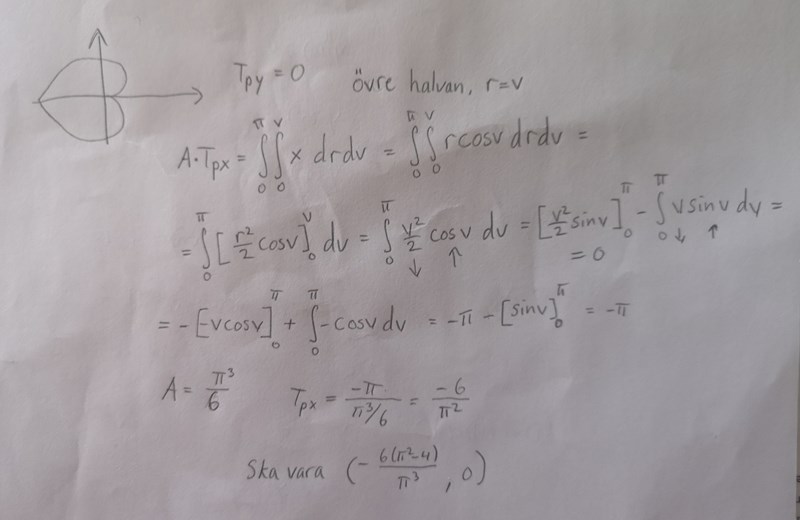 T_py = 0 övre halvan, r=v
A·T_px = ∫_0^π ∫_0^v x drdv = ∫_0^π ∫_0^v rcosv drdv =
= ∫_0^π [r²/2 cosv]_0^v dv = ∫_0^π v²/2 ↓ cosv ↑ dv = [v²/2 sinv]_0^π - ∫_0^π v ↓ sinv ↑ dv =
= 0
= -[-vcosv]_0^π + ∫_0^π -cosv dv = -π - [sinv]_0^π = -π
A = π³/6 T_px = -π/(π³/6) = -6/π²
Ska vara (- 6(π²-4)/π³, 0)